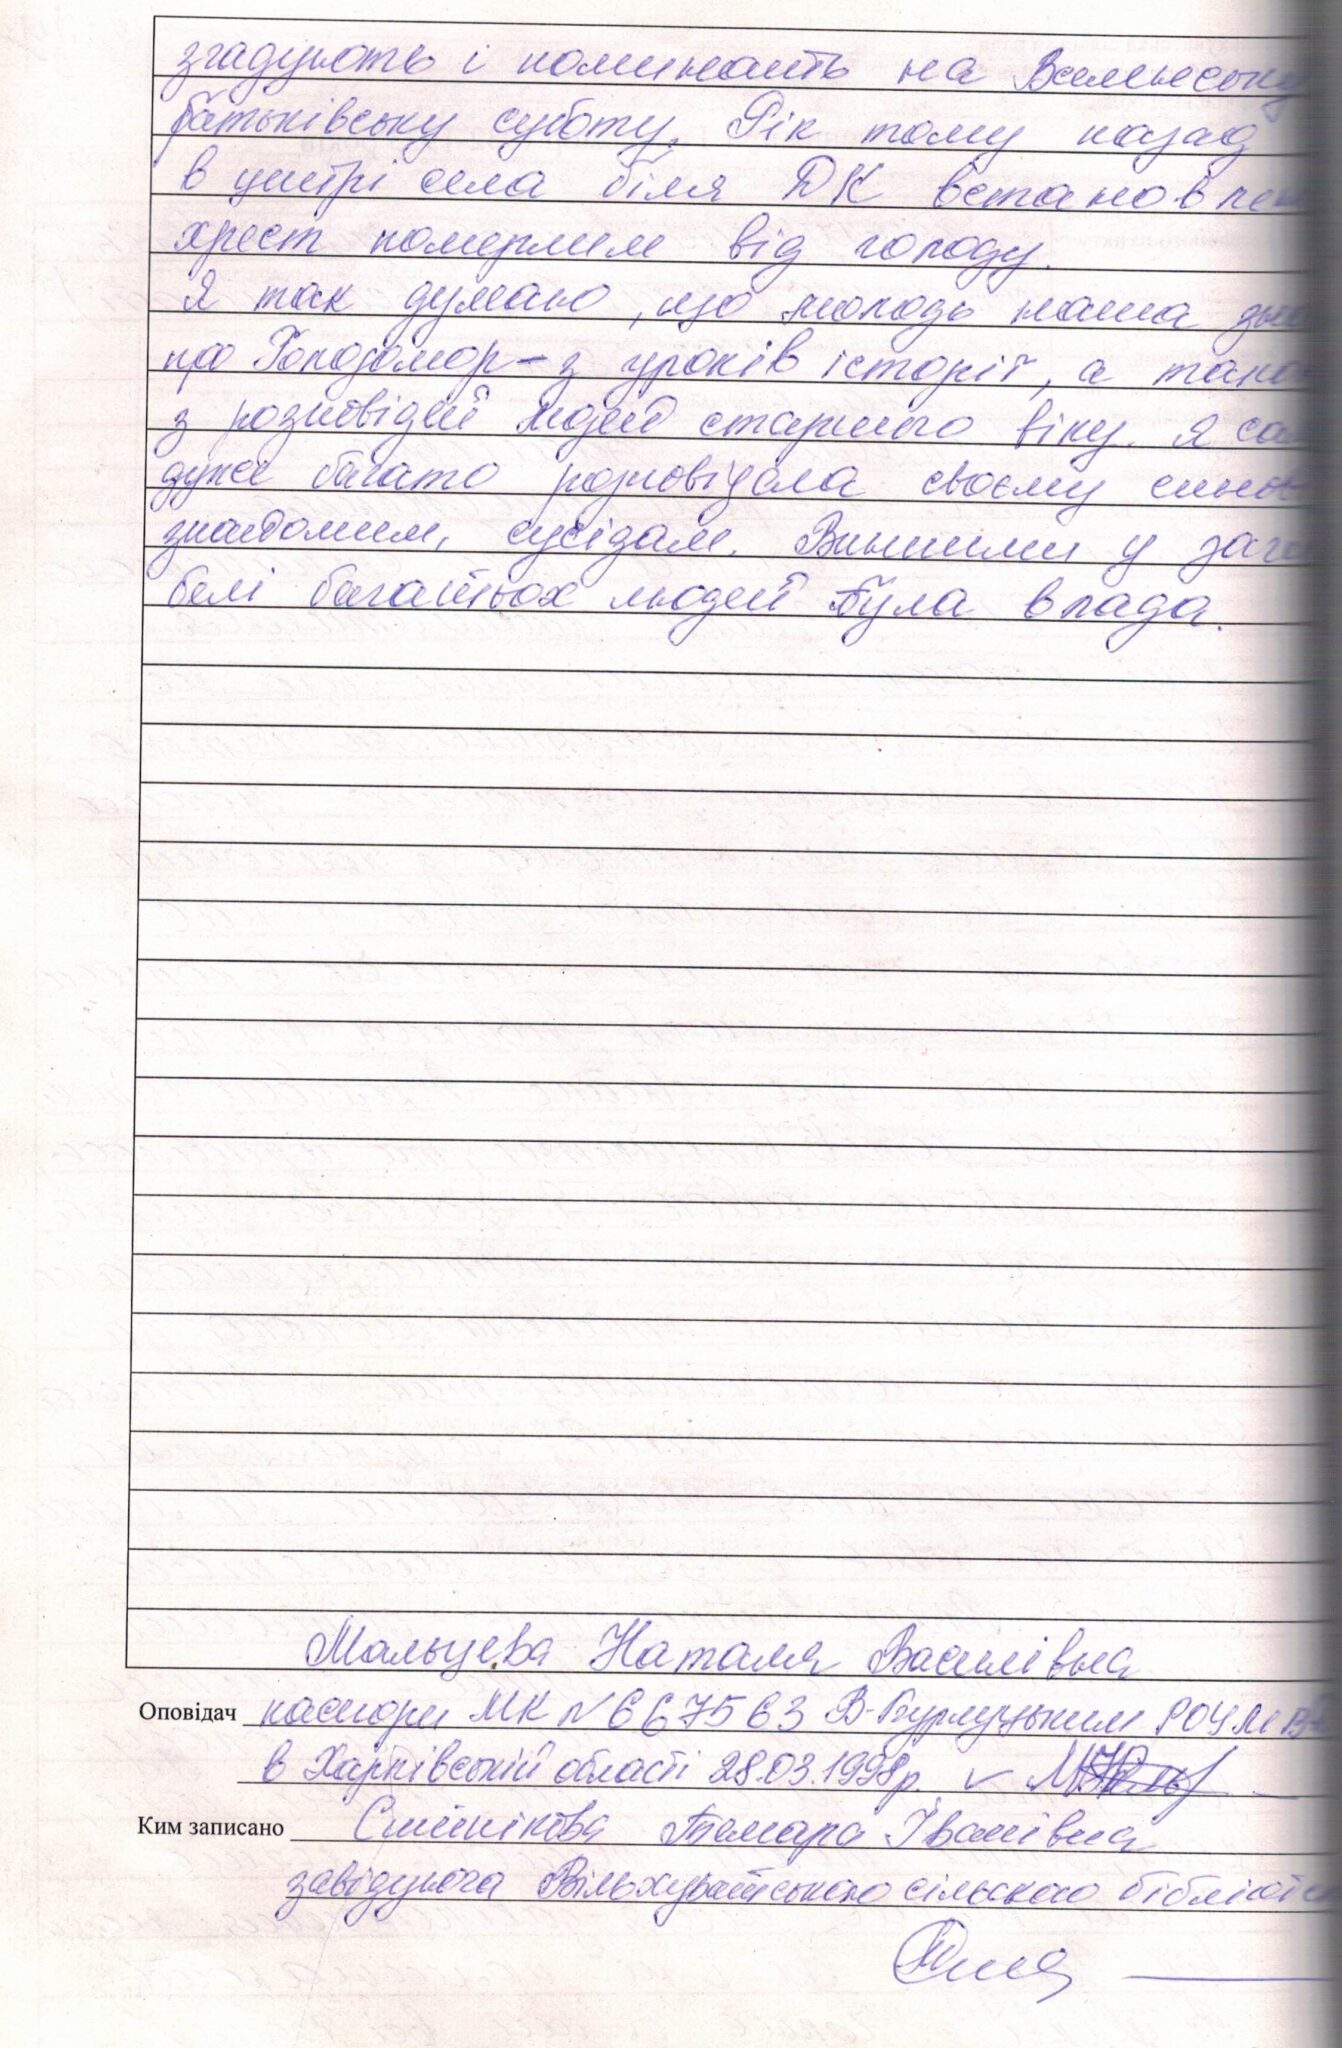 згадують і поминають на Вселенську
батьківську суботу. Рік тому назад
в центрі села біля ДК встановлен
хрест померлим від голоду.
Я так думаю, що молодь наша зна
про Голодомор - з уроків історії, а також
з розповідей людей старшого віку. Я сам
дуже багато розповідала своєму синов
знайомим, сусідам. Винними у заги
белі багатьох людей була влада.
Мальцева Наталя Василівна
Оповідач паспорт МК № 667563 В-Бурлуцьким РОУМВС
в Харківській області 28.03.1998р.
Ким записано Тамара Іванівна
завідуюча сільською бібліотек